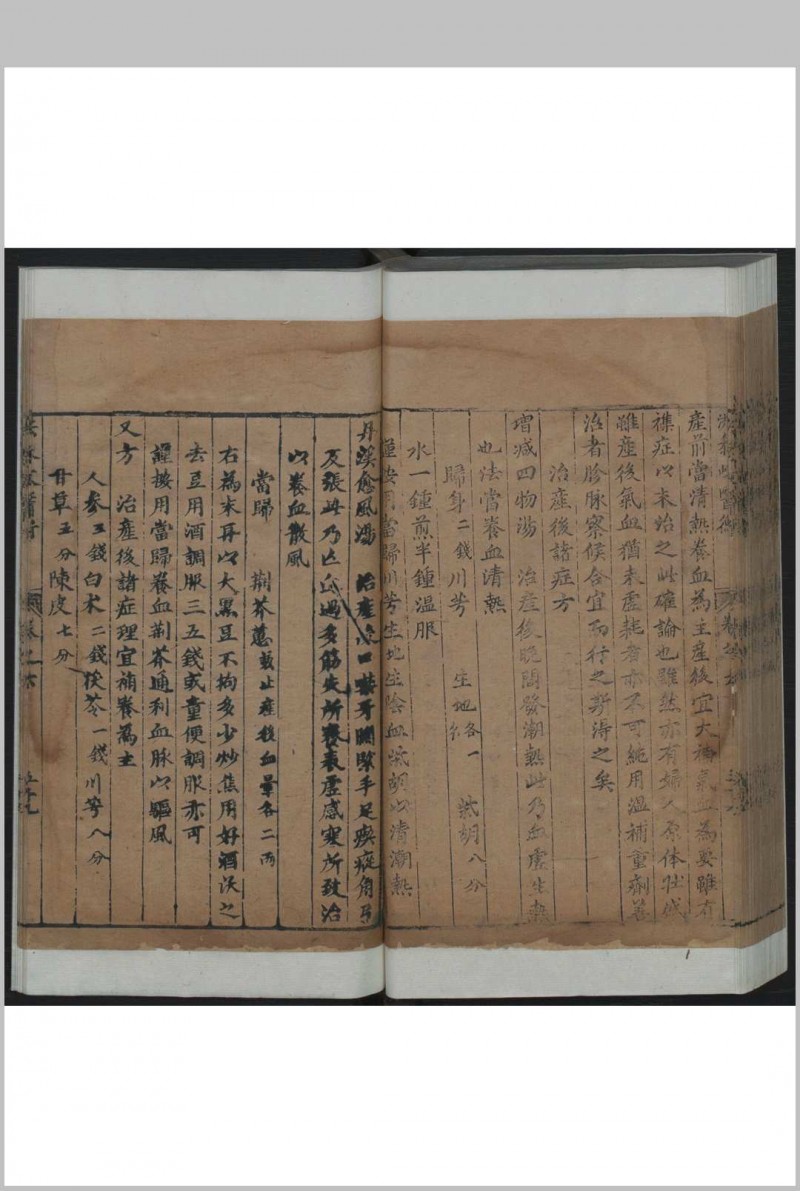 產前當清熱養血為主產後宜大補氣血為要雖有
襍症以末治之此確論也雖然亦有婦人原体壯盛
雖產後氣血猶未虛耗者亦不可純用溫補重劑善
治者胗脉察候合宜而行之斯淂之矣
治產後諸症方
增減四物湯 治產後晚間發潮熱此乃血虛生熱
也法當養血清熱
歸身二錢川芎 生地各一 柴胡八分
水一鍾煎半鍾溫服
按用當歸川芎生地生陰血柴胡以清潮熱
丹溪愈風湯 治產後口禁牙関緊手足瘈瘲角弓
反張此乃亡血過多筋失所養表虛感寒所致治
以養血散風
當歸 荊芥蕙載止產後血暈各二兩
右為末再以大黑豆不拘多少炒焦用好酒沃之
去豆用酒調服三五錢或童便調服亦可
謹按用當歸養血荊芥通利血脉以驅風
又方 治產後諸症理宜補養為主
人參五錢白术二錢茯苓一錢川芎八分
甘草五分陳皮七分